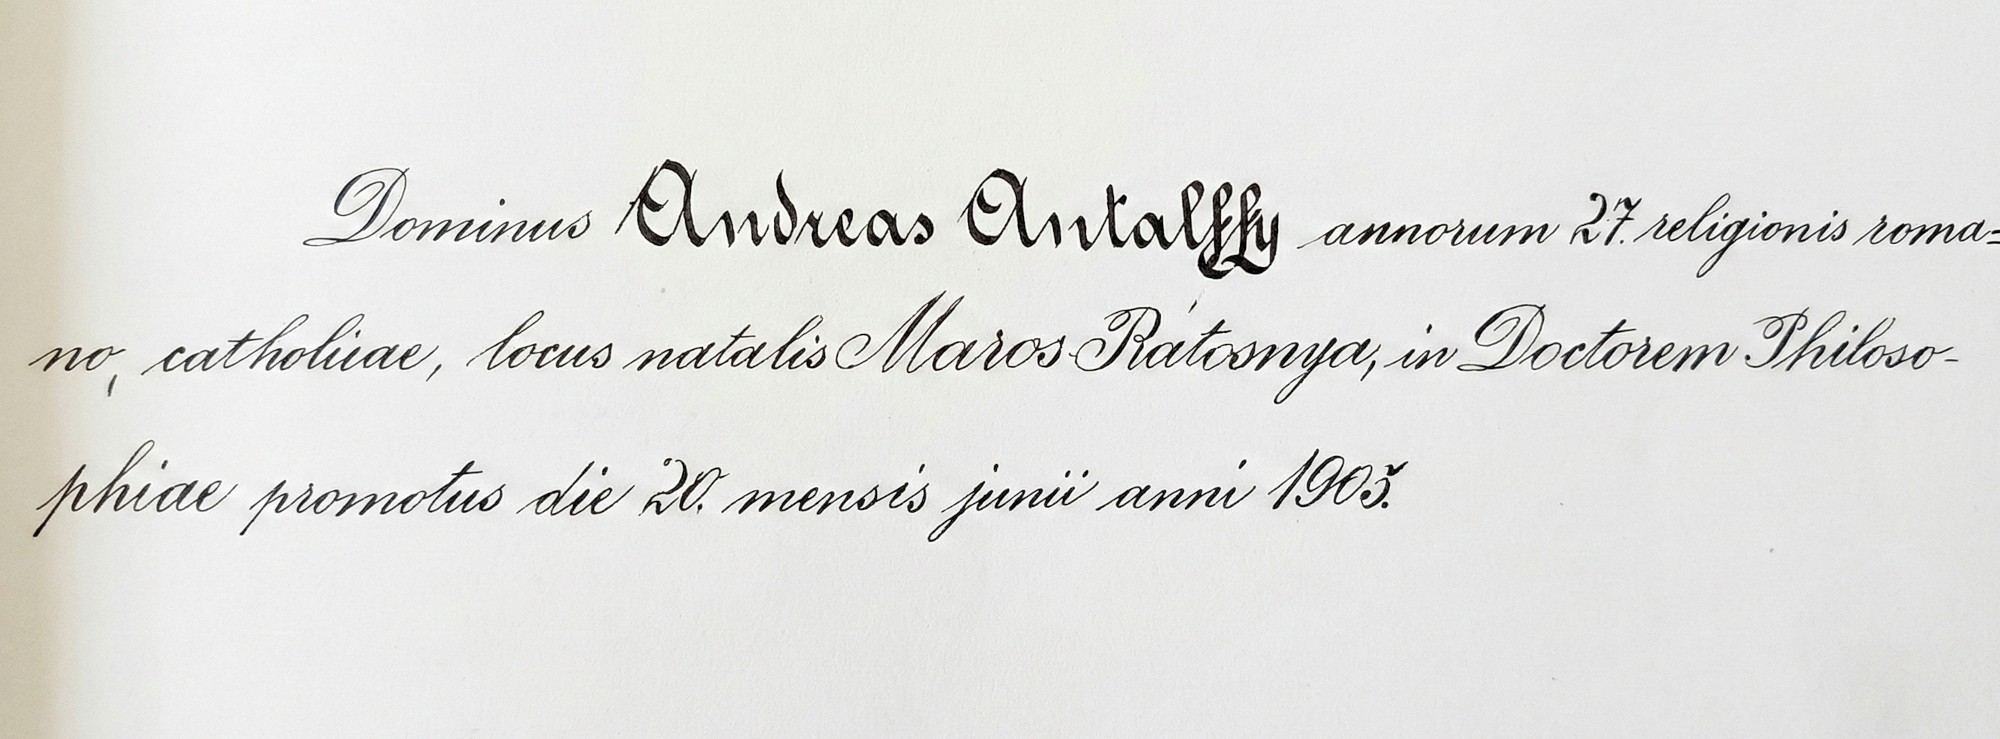 Dominus Andreas Antalffy annorum 27. religionis roma=
no, catholicae, locus natalis Maros-Rátosnya, in Doctorem Philoso-
phiae promotus die 20. mensis junii anni 1905.